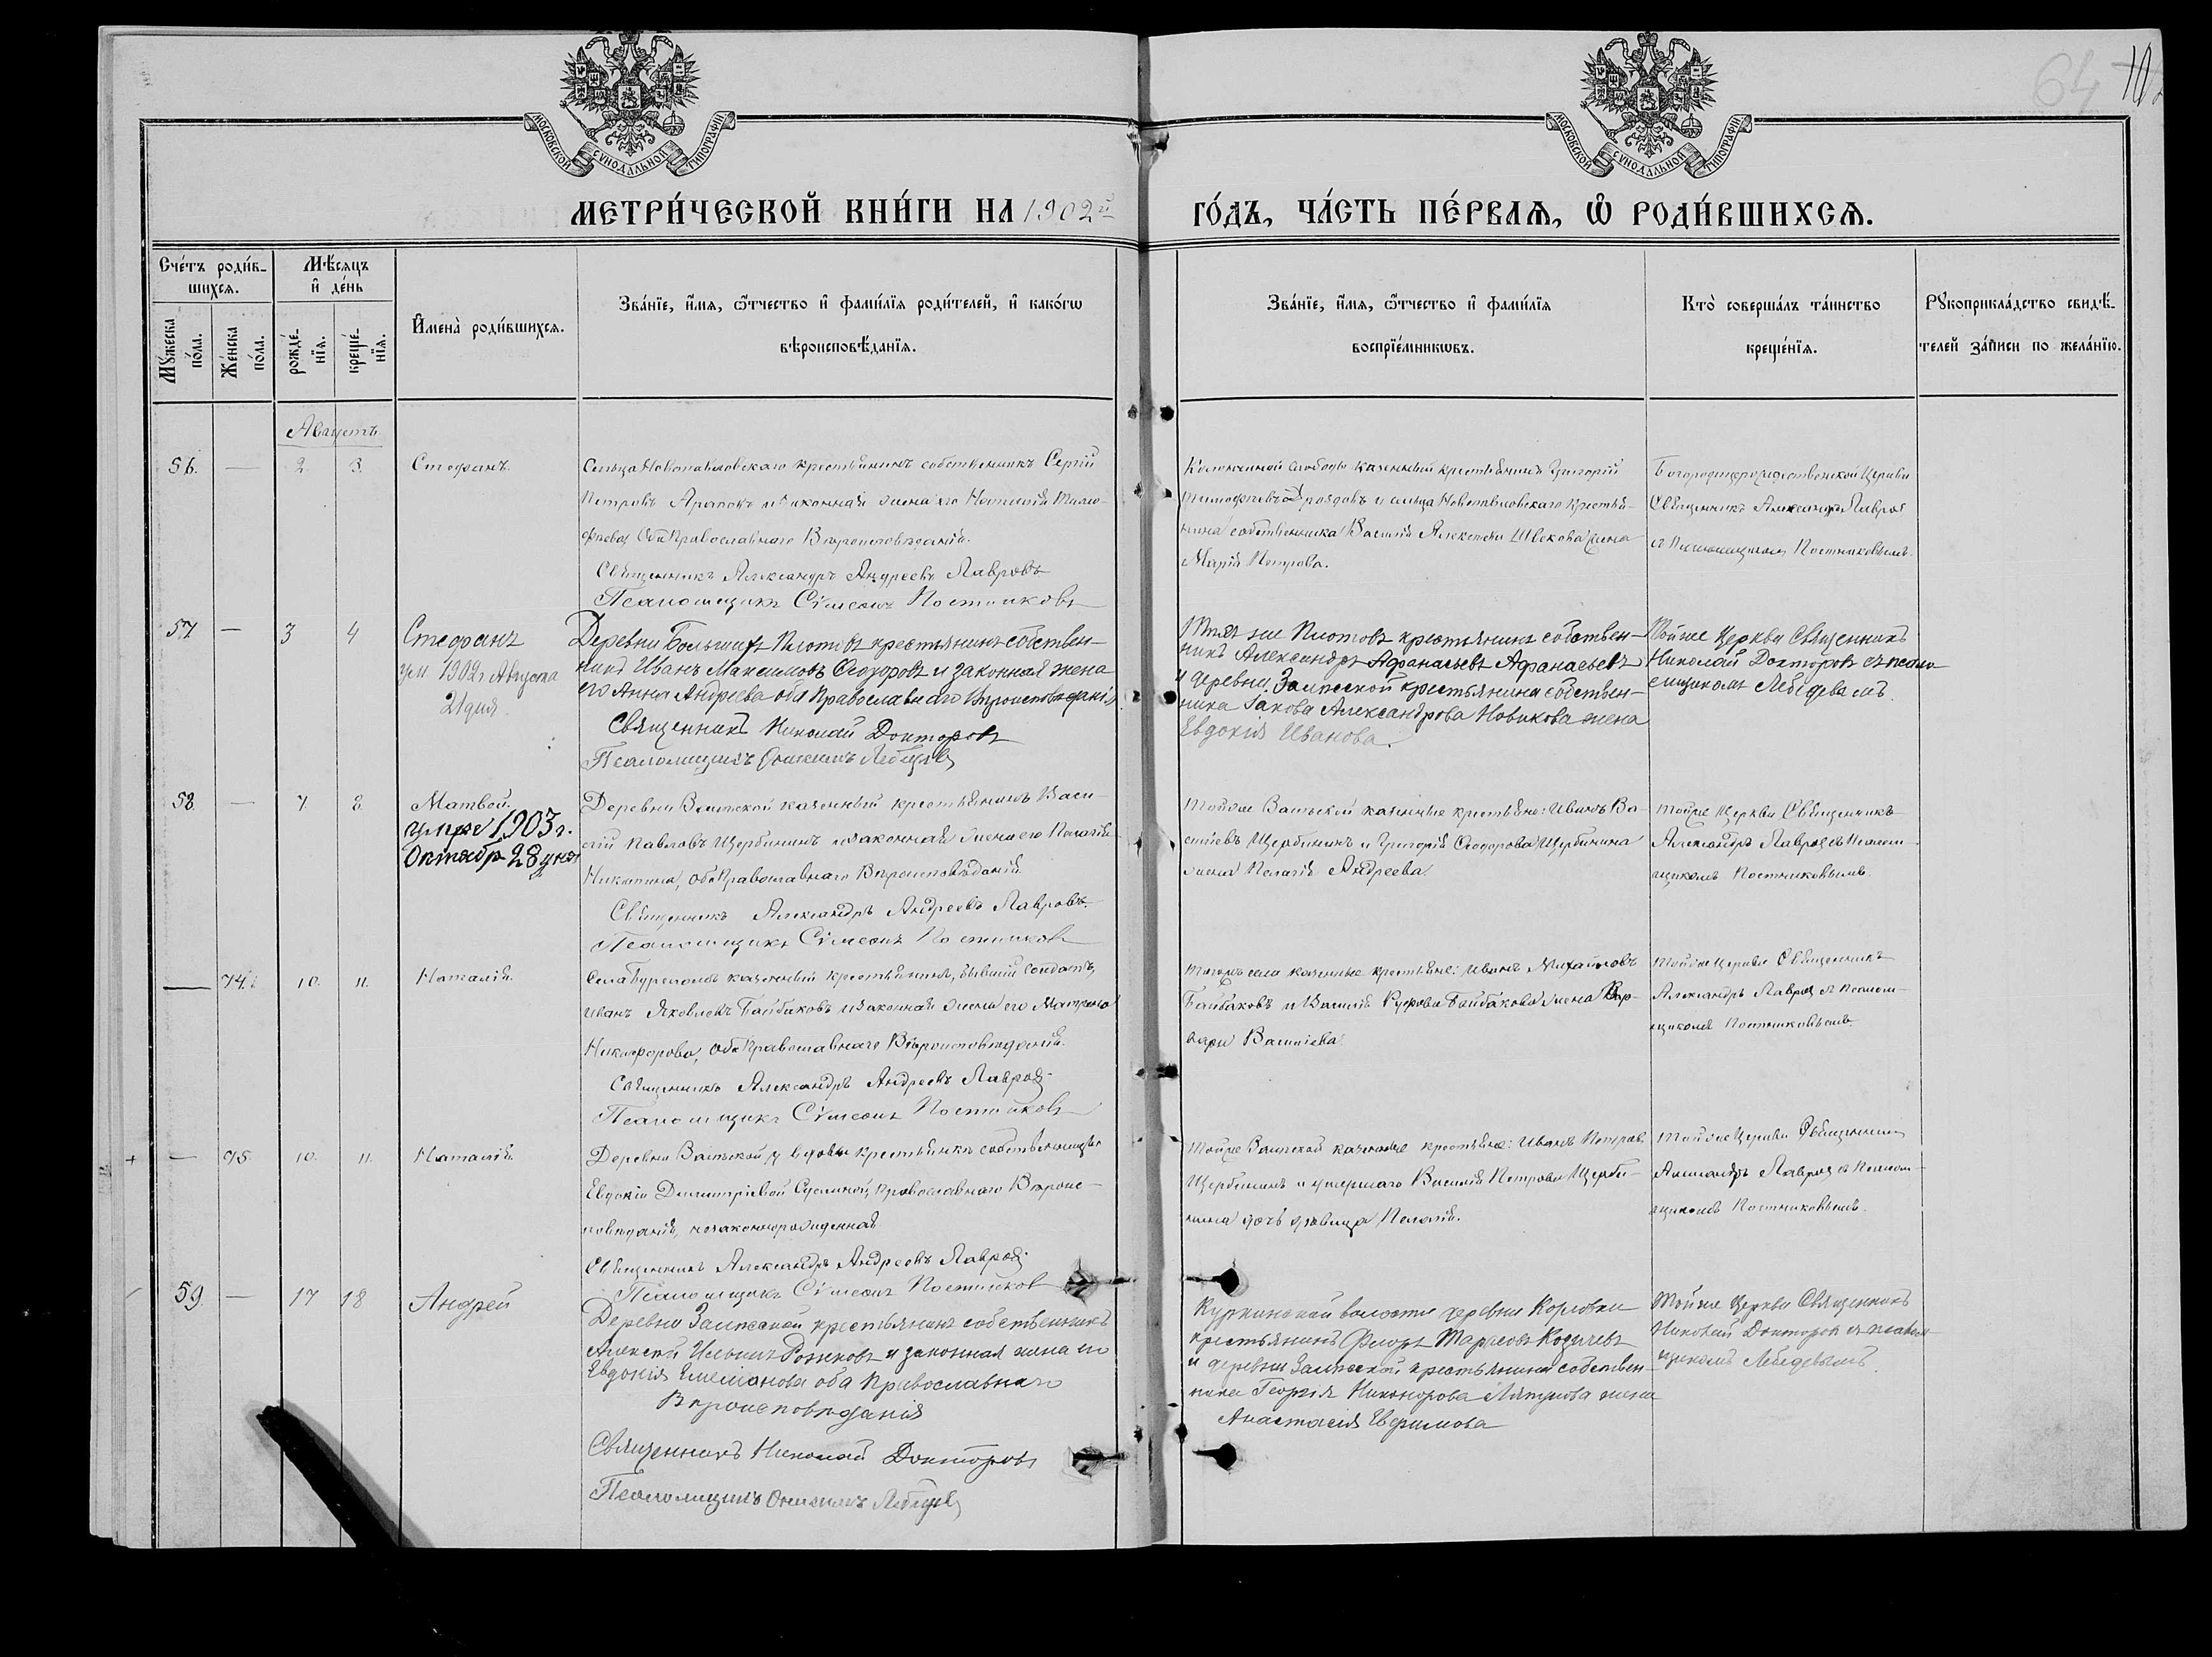 64
МОСКОВСКОЙ СѴНОДАЛЬНОЙ ТИПОГРАФІИ
МОСКОВСКОЙ СѴНОДАЛЬНОЙ ТИПОГРАФІИ
МЕТРИ́ЧЕСКОЙ КНИ́ГИ НА 1902й
ГО́ДЪ, ЧА́СТЬ ПЕ́РВАѦ, Ѽ РОДИ́ВШИХСѦ.
Сче́тъ роди́в-
шихсѧ.
Мꙋ́жеска по́ла.
Же́нска по́ла.
Мѣ́сѧцъ
и҆ де́нь
рожде́-
нїѧ.
креще́-
нїѧ.
И҆мена̀ роди́вшихсѧ.
Зва́нїе, и҆́мѧ, ѻ҆́тчество и҆ фами́лїѧ роди́телей, и҆ како́гѡ
вѣроисповѣ́данїѧ.
Зва́нїе, и҆́мѧ, ѻ҆́тчество и҆ фами́лїѧ
воспрїе́мникѡвъ.
Кто̀ соверша́лъ та́инство
креще́нїѧ.
Рꙋкоприкла́дство свидѣ́-
телей за́писи по жела́нїю.
Августъ.
56. — 2. 3. Стефанъ.
Сельца Новопавловскаго крестьянинъ собственникъ Сергій
Петровъ и законная жена его Наталія Тимо-
фѣева оба Православнаго Вѣроисповѣданія.
Священникъ Александръ Андреевъ Лавровъ
Псаломщикъ Сѵмеонъ Постниковъ
слободы казенный крестьянинъ Григорій
Тимофѣевъ Дроздовъ и сельца Новопавловскаго крестья-
нина собственника Василія Алексѣева жена
Марія Петрова.
Богородицерождественской Церкви
Священникъ Александръ Лавровъ
съ Псаломщикомъ Постниковымъ.
57 — 3 4 Стефанъ
ум. 1902 г Августа
21 дня.
Деревни Большихъ Плотовъ крестьянинъ собствен-
никъ Иванъ Максимовъ Ѳедоровъ и законная жена
его Анна Андреева оба Православнаго Вѣроисповѣданія
Священникъ Николай Докторовъ
Псаломщикъ Лебедевъ
же Плотовъ крестьянинъ собствен-
никъ Александръ Афанасьевъ Афанасьевъ
и деревни Залѣсской крестьянина собствен-
ника Іакова Александрова Новикова жена
Евдокія Иванова.
Тойже Церкви Священникъ
Николай Докторовъ съ псало-
мщикомъ Лебедевымъ
58 — 7. 8. Матвей.
умре 1903 г.
Октябр 28 дня
Деревни казенный крестьянинъ Васи-
лій Павловъ Щербининъ и законная жена его Пелагія
Никитина, оба Православнаго Вѣроисповѣданія.
Священникъ Александръ Андреевъ Лавровъ.
Псаломщикъ Сѵмеонъ Постниковъ
Тойже казенные крестьяне: Иванъ Ва-
сильевъ Щербининъ и Григорія Ѳеодорова Щербинина
жена Пелагія Андреева.
Тойже Церкви Священникъ
Александръ Лавровъ съ Псалом-
щикомъ Постниковымъ.
— 74. 10. 11. Наталія.
Села казенный крестьянинъ, бывшій солдатъ,
Иванъ Яковлевъ Байбаковъ и законная жена его Матрона
Никифорова, оба Православнаго Вѣроисповѣданія.
Священникъ Александръ Андреевъ Лавровъ.
Псаломщикъ Сѵмеонъ Постниковъ
Тогожъ села казенные крестьяне: Иванъ Михайловъ
Байбаковъ и Василія Байбакова жена Вар-
вара Васильева.
Тойже Церкви Священникъ
Александръ Лавровъ съ Псалом-
щикомъ Постниковымъ.
+ — 75. 10. 11. Наталія.
Деревни у вдовы крестьянки собственницы
Евдокіи Димитріевой Православнаго Вѣроис-
повѣданія, незаконнорожденная
Священникъ Александръ Андреевъ Лавровъ.
Псаломщикъ Сѵмеонъ Постниковъ
Тойже казенные крестьяне: Иванъ Петровъ
Щербининъ и умершаго Василія Петрова Щерби-
нина дочь дѣвица Пелагія.
Тойже Церкви Священникъ
Александръ Лавровъ съ Псалом-
щикомъ Постниковымъ.
59. — 17 18 Андрей
Деревни Залѣсской крестьянинъ собственникъ
Алексѣй Ильинъ Рожковъ и законная жена его
Евдокія Емельянова оба Православнаго
Вѣроисповѣданія
Священникъ Николай Докторовъ
Псаломщикъ Лебедевъ
Куркинской волости деревни
крестьянинъ
и деревни Залѣсской крестьянина собствен-
ника Георгія Никонорова Ляпунова жена
Анастасія Евфимова
Тойже Церкви Священникъ
Николай Докторовъ съ псалом-
щикомъ Лебедевымъ.